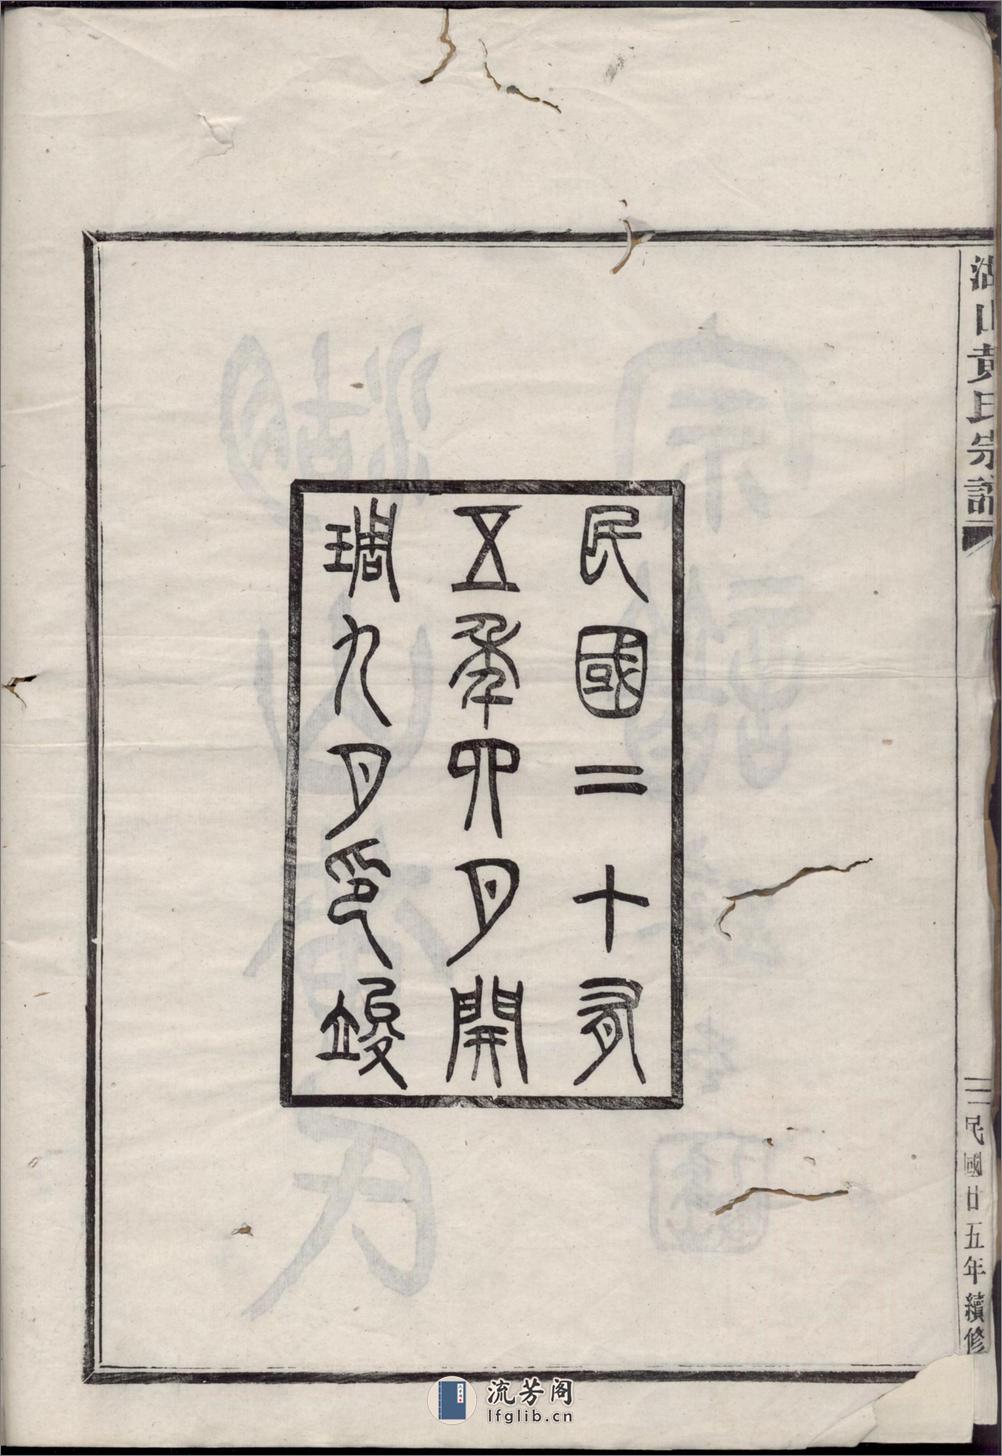 湖山黃氏宗譜
民國廿五年續修
民國二十有
五年四月開
琱九月印竣
流芳阁
lfglib.cn